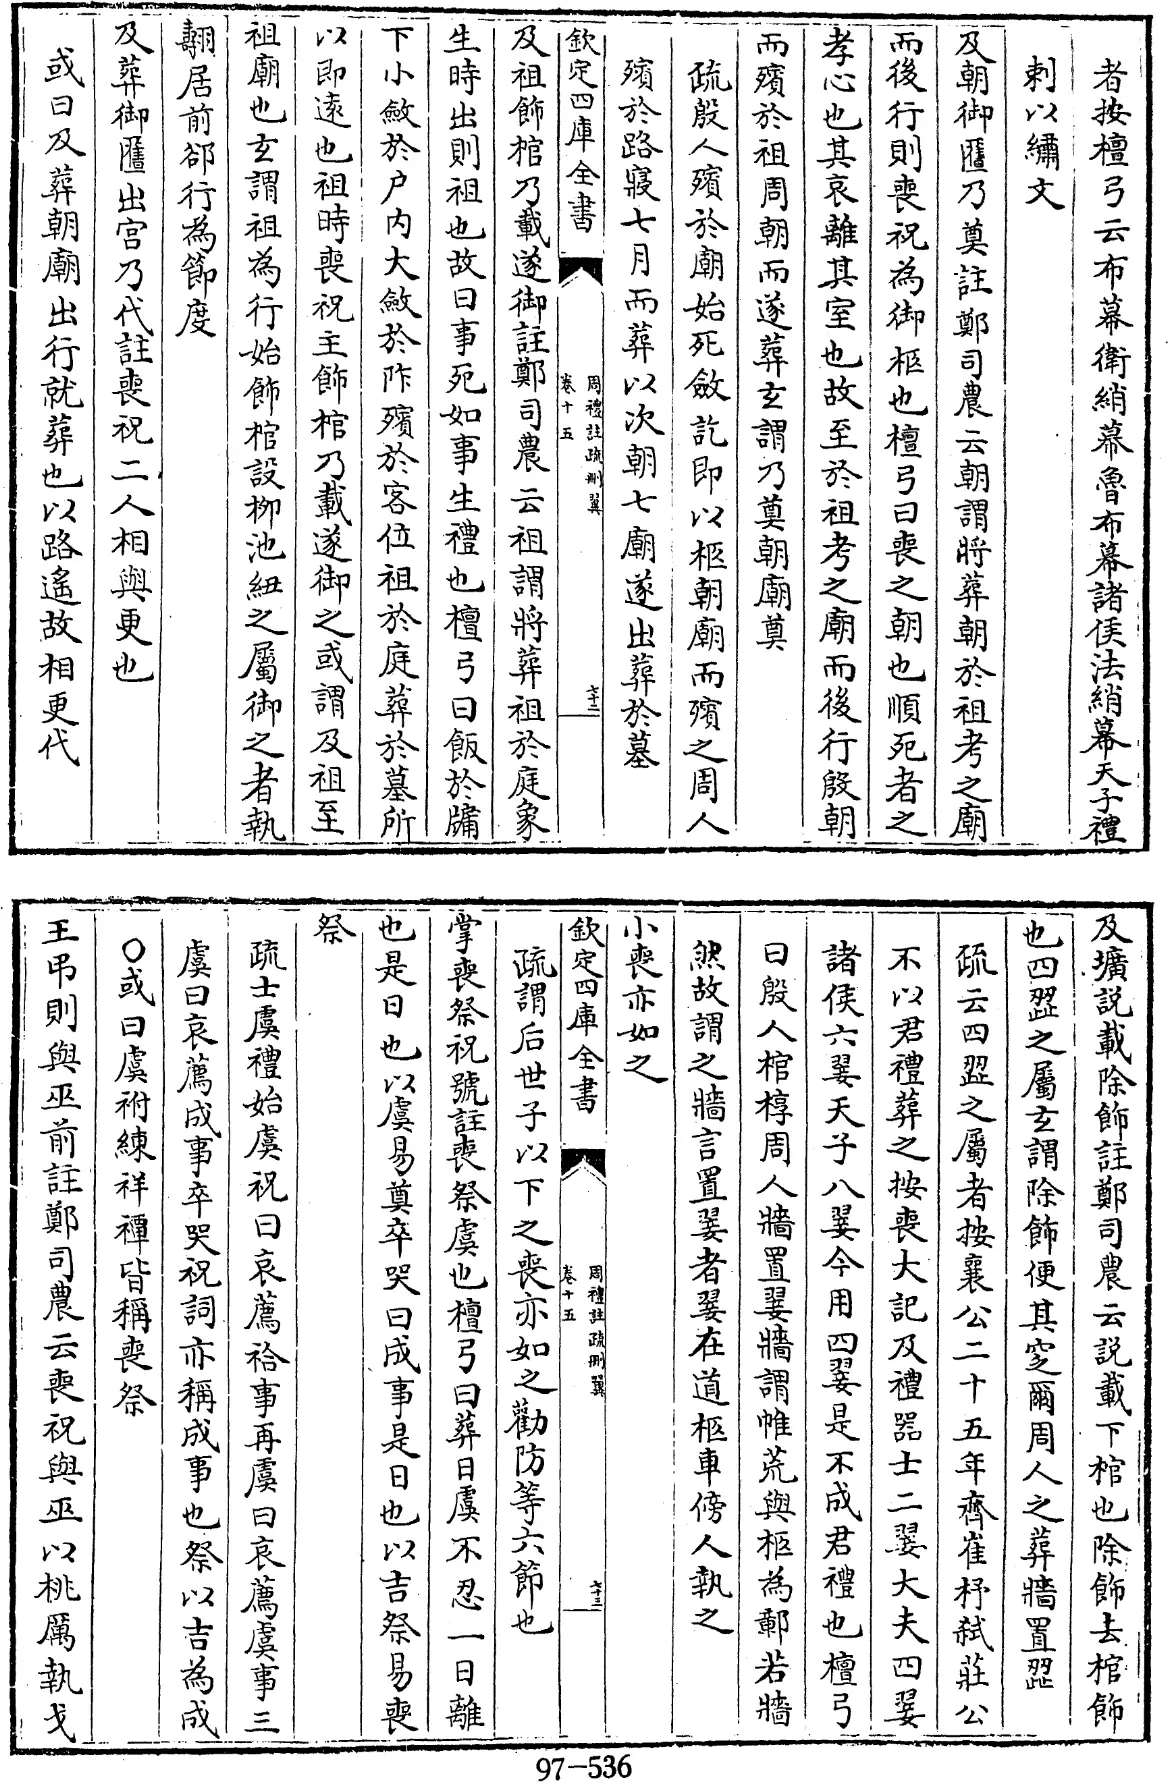 者按檀弓云布幕衛綃幕魯布幕諸侯法綃幕天子禮
刺以繡文
及朝御匶乃奠註鄭司農云朝謂將葬朝於祖考之廟
而後行則喪祝為御柩也檀弓曰喪之朝也順死者之
孝心也其哀離其室也故至於祖考之廟而後行殷朝
而殯於祖周朝而遂葬玄謂乃奠朝廟奠
疏殷人殯於廟始死斂訖即以柩朝廟而殯之周人
殯於路寢七月而葬以次朝七廟遂出葬於墓
欽定四庫全書
周禮註疏刪翼
卷十五
六十二
及祖飾棺乃載遂御註鄭司農云祖謂將葬祖於庭象
生時出則祖也故曰事死如事生禮也檀弓曰飯於牖
下小斂於户内大斂於阼殯於客位祖於庭葬於墓所
以即遠也祖時喪祝主飾棺乃載遂御之或謂及祖至
祖廟也玄謂祖為行始飾棺設柳池紐之屬御之者執
翿居前郤行為節度
及葬御匶出宫乃代註喪祝二人相與更也
或曰及葬朝廟出行就葬也以路遙故相更代
及壙説載除飾註鄭司農云説載下棺也除飾去棺飾
也四歰之屬玄謂除飾便其窆爾周人之葬牆置歰
疏云四歰之屬者按襄公二十五年齊崔杼弒莊公
不以君禮葬之按喪大記及禮器士二翣大夫四翣
諸侯六翣天子八翣今用四翣是不成君禮也檀弓
曰殷人棺椁周人牆置翣牆謂帷荒與柩為鄣若牆
然故謂之牆言置翣者翣在道柩車傍人執之
小喪亦如之
欽定四庫全書
周禮註疏刪翼
卷十五
六十三
疏謂后世子以下之喪亦如之勸防等六節也
掌喪祭祝號註喪祭虞也檀弓曰葬日虞不忍一日離
也是日也以虞易奠卒哭曰成事是日也以吉祭易喪
祭
疏士虞禮始虞祝曰哀薦祫事再虞曰哀薦虞事三
虞曰哀薦成事卒哭祝詞亦稱成事也祭以吉為成
○或曰虞祔練祥禫皆稱喪祭
王弔則與巫前註鄭司農云喪祝與巫以桃厲執戈
97-536